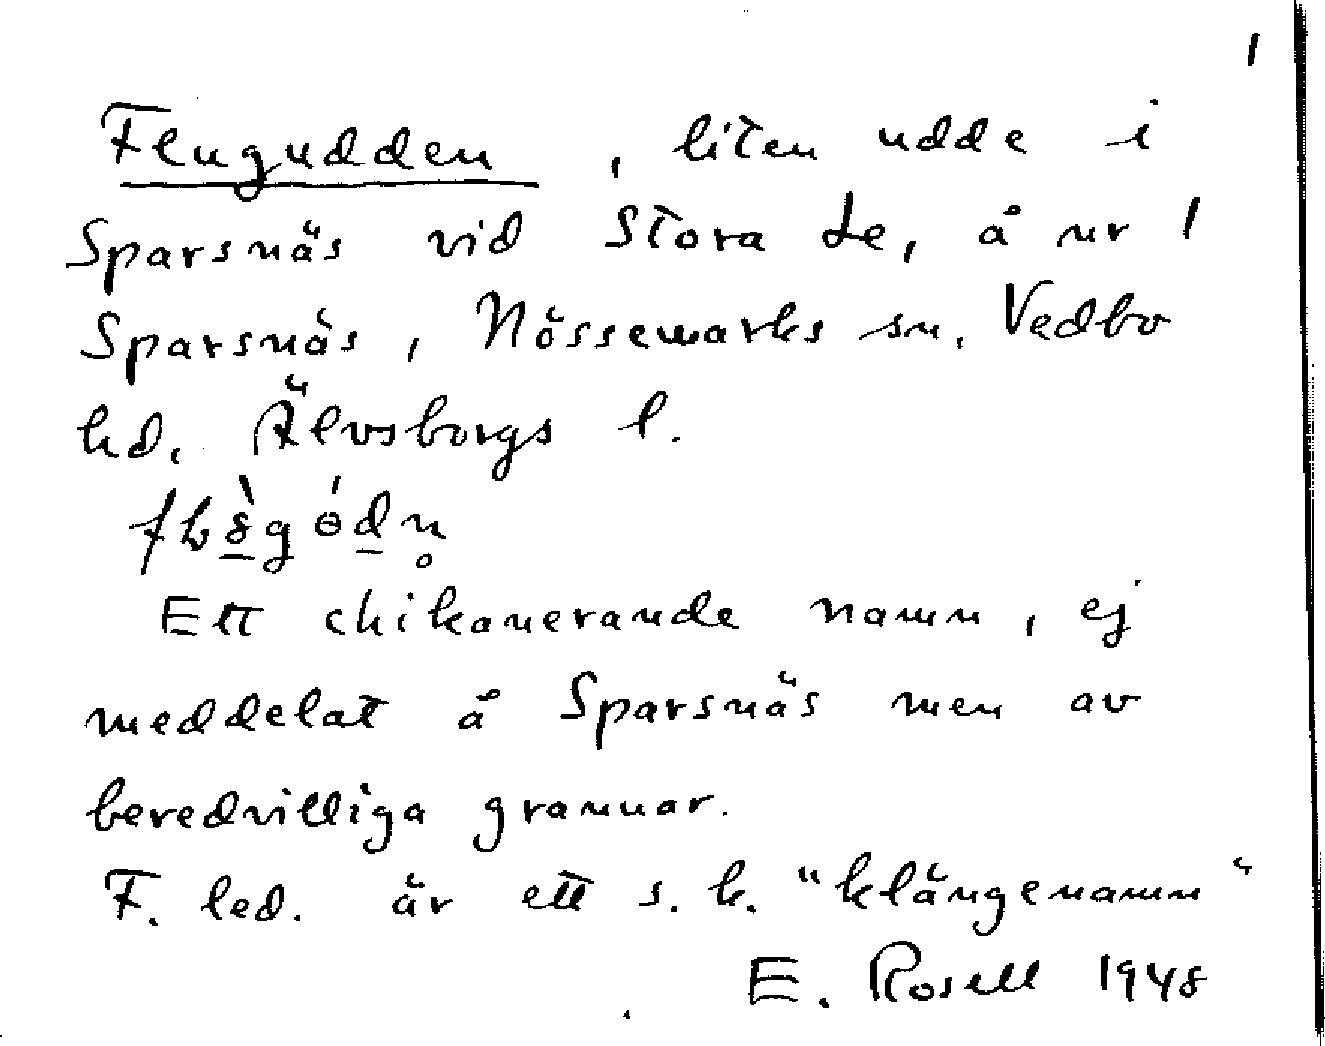 1
Flugudden, liten udde i
Sparsnäs vid Stora Le, å nr 1
Sparsnäs, Nössemarks sn. Vedbo
hd. Älvsborgs l.
Ett chikanerande namn, ej
meddelat å Sparsnäs men av
beredvilliga grannar.
F. led. är ett s. k. "klängenamn"
E. Rosell 1948